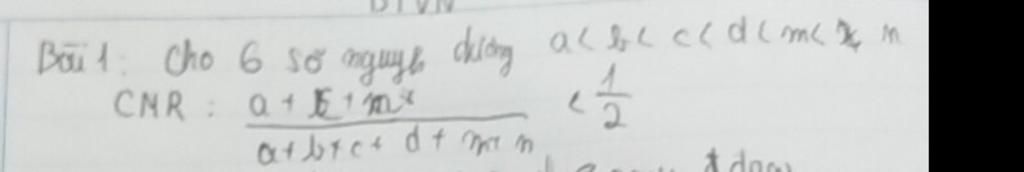 BTVN
Bài 1: Cho 6 số nguyên dương a < b < c < d < m < n
CMR : a + c + m / a + b + c + d + m + n < 1/2